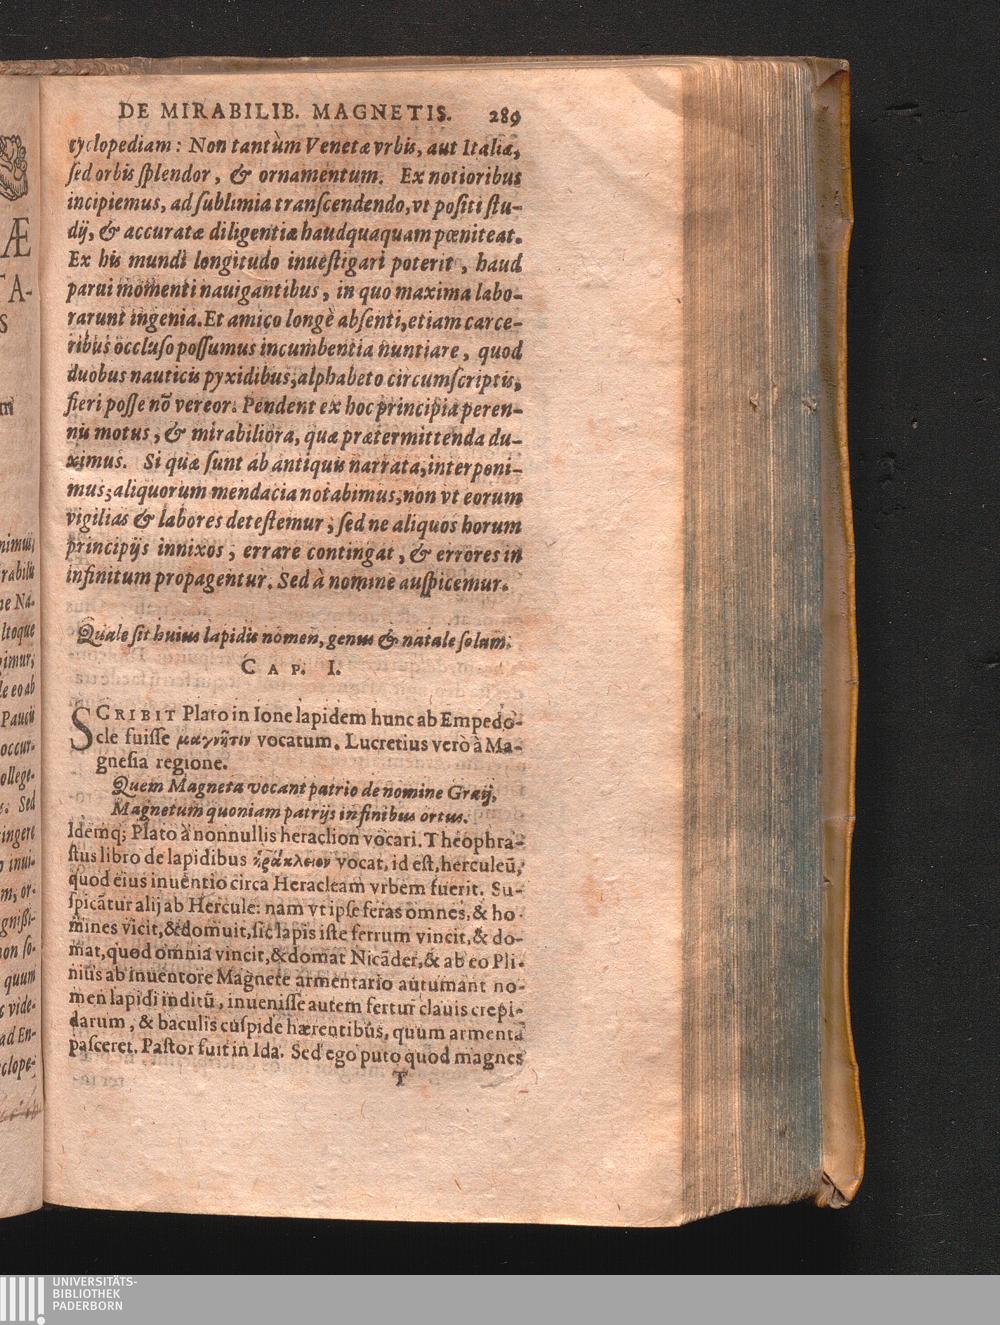 DE MIRABILIB. MAGNETIS. 289
cyclopediam: Non tantùm Venetæ vrbis, aut Italiæ,
ſed orbis ſplendor, & ornamentum. Ex notioribus
incipiemus, ad ſublimia tranſcendendo, vt poſiti ſtu-
dij, & accuratæ diligentiæ haudquaquam pœniteat.
Ex his mundi longitudo inueſtigari poterit, haud
parui momenti nauigantibus, in quo maxima labo-
rarunt ingenia. Et amico longè abſenti, etiam carce-
ribus occluſo poſſumus incumbentia nuntiare, quod
duobus nauticis pyxidibus, alphabeto circumſcriptis,
fieri poſſe nō vereor. Pendent ex hoc principia peren-
nis motus, & mirabiliora, quæ prætermittenda du-
ximus. Si quæ ſunt ab antiquis narrata, interponi-
mus; aliquorum mendacia notabimus, non vt eorum
vigilias & labores deteſtemur, ſed ne aliquos horum
principijs innixos, errare contingat, & errores in
infinitum propagentur. Sed à nomine auſpicemur.
Quale ſit huius lapidis nomen, genus & natale ſolum.
CAP. I.
SCRIBIT Plato in Ione lapidem hunc ab Empedo-
cle fuiſſe μαγνῆτιν vocatum. Lucretius verò à Ma-
gneſia regione.
Quem Magneta vocant patrio de nomine Graij,
Magnetum quoniam patrijs in finibus ortus.
Idemq; Plato à nonnullis heraclion vocari. Theophra-
ſtus libro de lapidibus ἡράκλειον vocat, id eſt, herculeū,
quod eius inuentio circa Heracleam vrbem fuerit. Su-
ſpicātur alij ab Hercule: nam vt ipſe feras omnes, & ho-
mines vicit, & domuit, ſic lapis iſte ferrum vincit, & do-
mat, quod omnia vincit, & domat Nicāder, & ab eo Pli-
nius ab inuentore Magnete armentario autumant no-
men lapidi inditū, inueniſſe autem fertur clauis crepi-
darum, & baculis cuſpide hærentibus, quum armenta
paſceret. Paſtor fuit in Ida. Sed ego puto quod magnes
T
UNIVERSITÄTS-
BIBLIOTHEK
PADERBORN